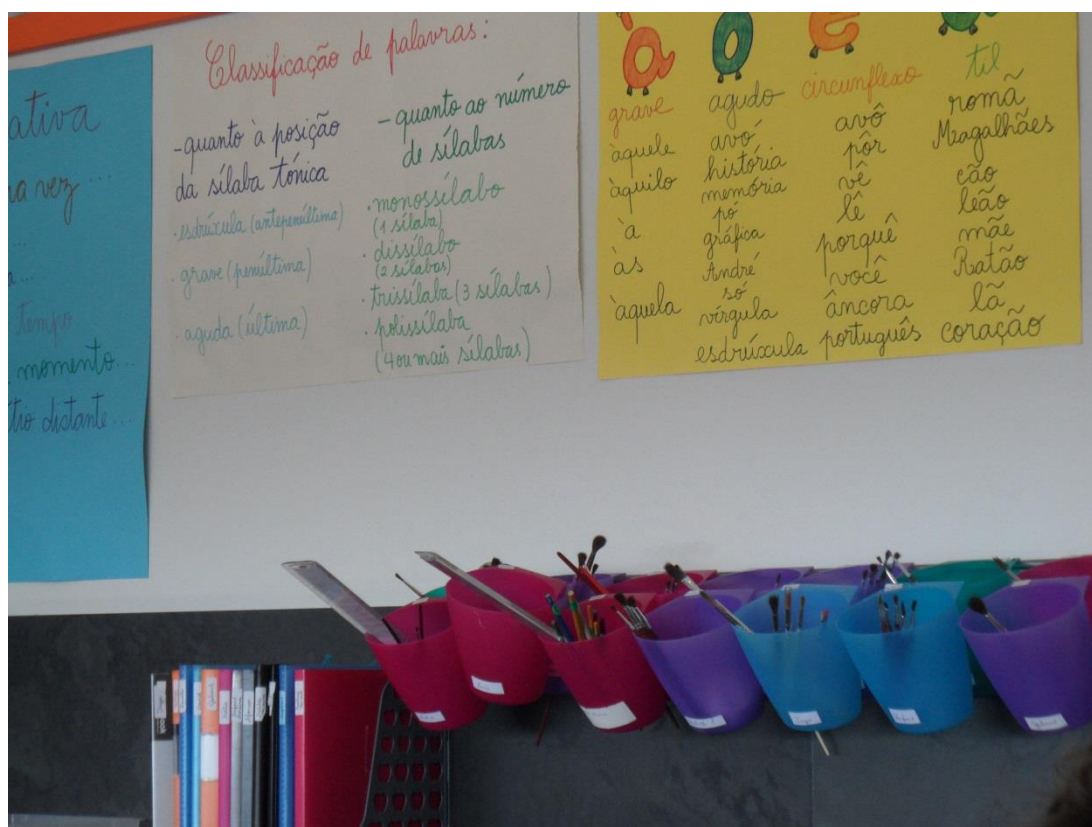 ativa
vez ...
...
tempo
momento...
distante...
Classificação de palavras:
- quanto à posição
da sílaba tónica
· esdrúxula (antepenúltima)
· grave (penúltima)
· aguda (última)
- quanto ao número
de sílabas
· monossílabo
(1 sílaba)
· dissílabo
(2 sílabas)
· trissílaba (3 sílabas)
· polissílaba
(4 ou mais sílabas)
grave
àquele
àquilo
à
às
àquela
agudo
avó
história
memória
pó
gráfica
André
só
vírgula
esdrúxula
circunflexo
avô
pôr
vê
lê
porquê
você
âncora
português
til
romã
Magalhães
cão
leão
mãe
Ratão
lã
coração